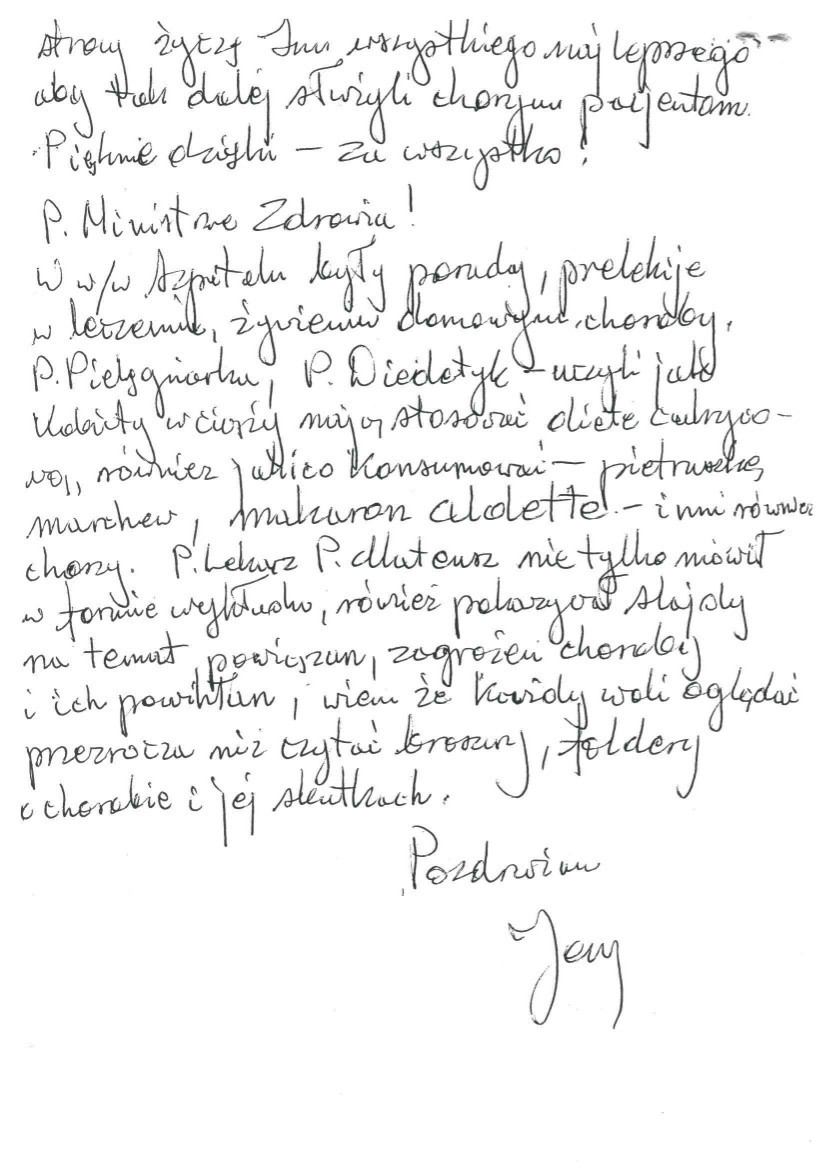 strony życzę Im wszystkiego najlepszego
aby tak dalej służyli chorym pacjentom.
Pięknie dzięki – za wszystko!
P. Ministrze Zdrowia!
W w/w Szpitalu były porady, prelekcje
w leczeniu, żywieniu domowym, choroby.
P. Pielęgniarka, P. Diedetyk – uczyli jak
Kobiety w ciąży mają stosować dietę cukrzyco-
wą, również jak i co Konsumować – pietruszkę,
marchew, makaron aldette – i inni również
chorzy. P. Lekarz P. Mateusz nie tylko mówił
w formie wykładu, również pokazywał slajdy
na temat powiązań, zagrożeń choroby
i ich powikłań, wiem że Każdy woli oglądać
przezrocza niż czytać broszury, foldery
o chorobie i jej skutkach.
Pozdrawiam
Jerzy